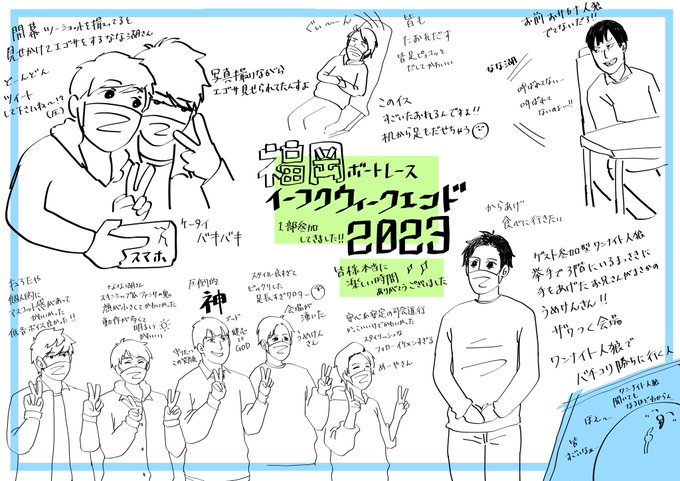 開幕ツーショットを撮ってると
見せかけてエゴサをするなな湖さん
どーんどん
ツイート
して下さいね〜!?
(圧)
写真撮りながら
エゴサ見せられてたんすよ
ケータイ
バキバキ
スマホ
ぐぃーーん
皆も
たおれだす
皆足ピョコッと
だしてかわいい
このイス
すごいたおれるんですよ!!
机から足もだせちゃう
お前おサカナ人狼
でてないだろ!!
なな湖
呼ばれてない…
呼ばれて
ないのよ…!!
福岡ボートレース
イーフクウィークエンド
2023
1部参加
してきました!!
皆様本当に
楽しい時間
ありがとうございました
からあげ
食べに行きたい
ゲスト参加型ワンナイト人狼
挙手で3階にいるまっさきに
手をあげたお兄さんがまさかの
うめけんさん!!
ザワっく会場
ワンナイト人狼で
バチコリ勝ちに行く人
個人的に
マスコット感があって
かわいかった
低音ボイス良かった!!
なな湖さん
スキンシップ&ファンサの鬼
顔が小さくてかわいかった
動作が歩くて
明るい
かわいい
圧倒的
神
ゴッド
GOD
守りたい
この笑顔
スタイル良すぎて
ビックリした
足長すぎワロター
会場が
沸いた
うめけん
さん
安心&安定の司会進行
かっこいいけどかわいかった
スタイリッシュな
フォロー イケメンすぎる
めーやさん
ワンナイト人狼
聞いても
なるほどわからん
ほえ〜
皆
すごいなぁ